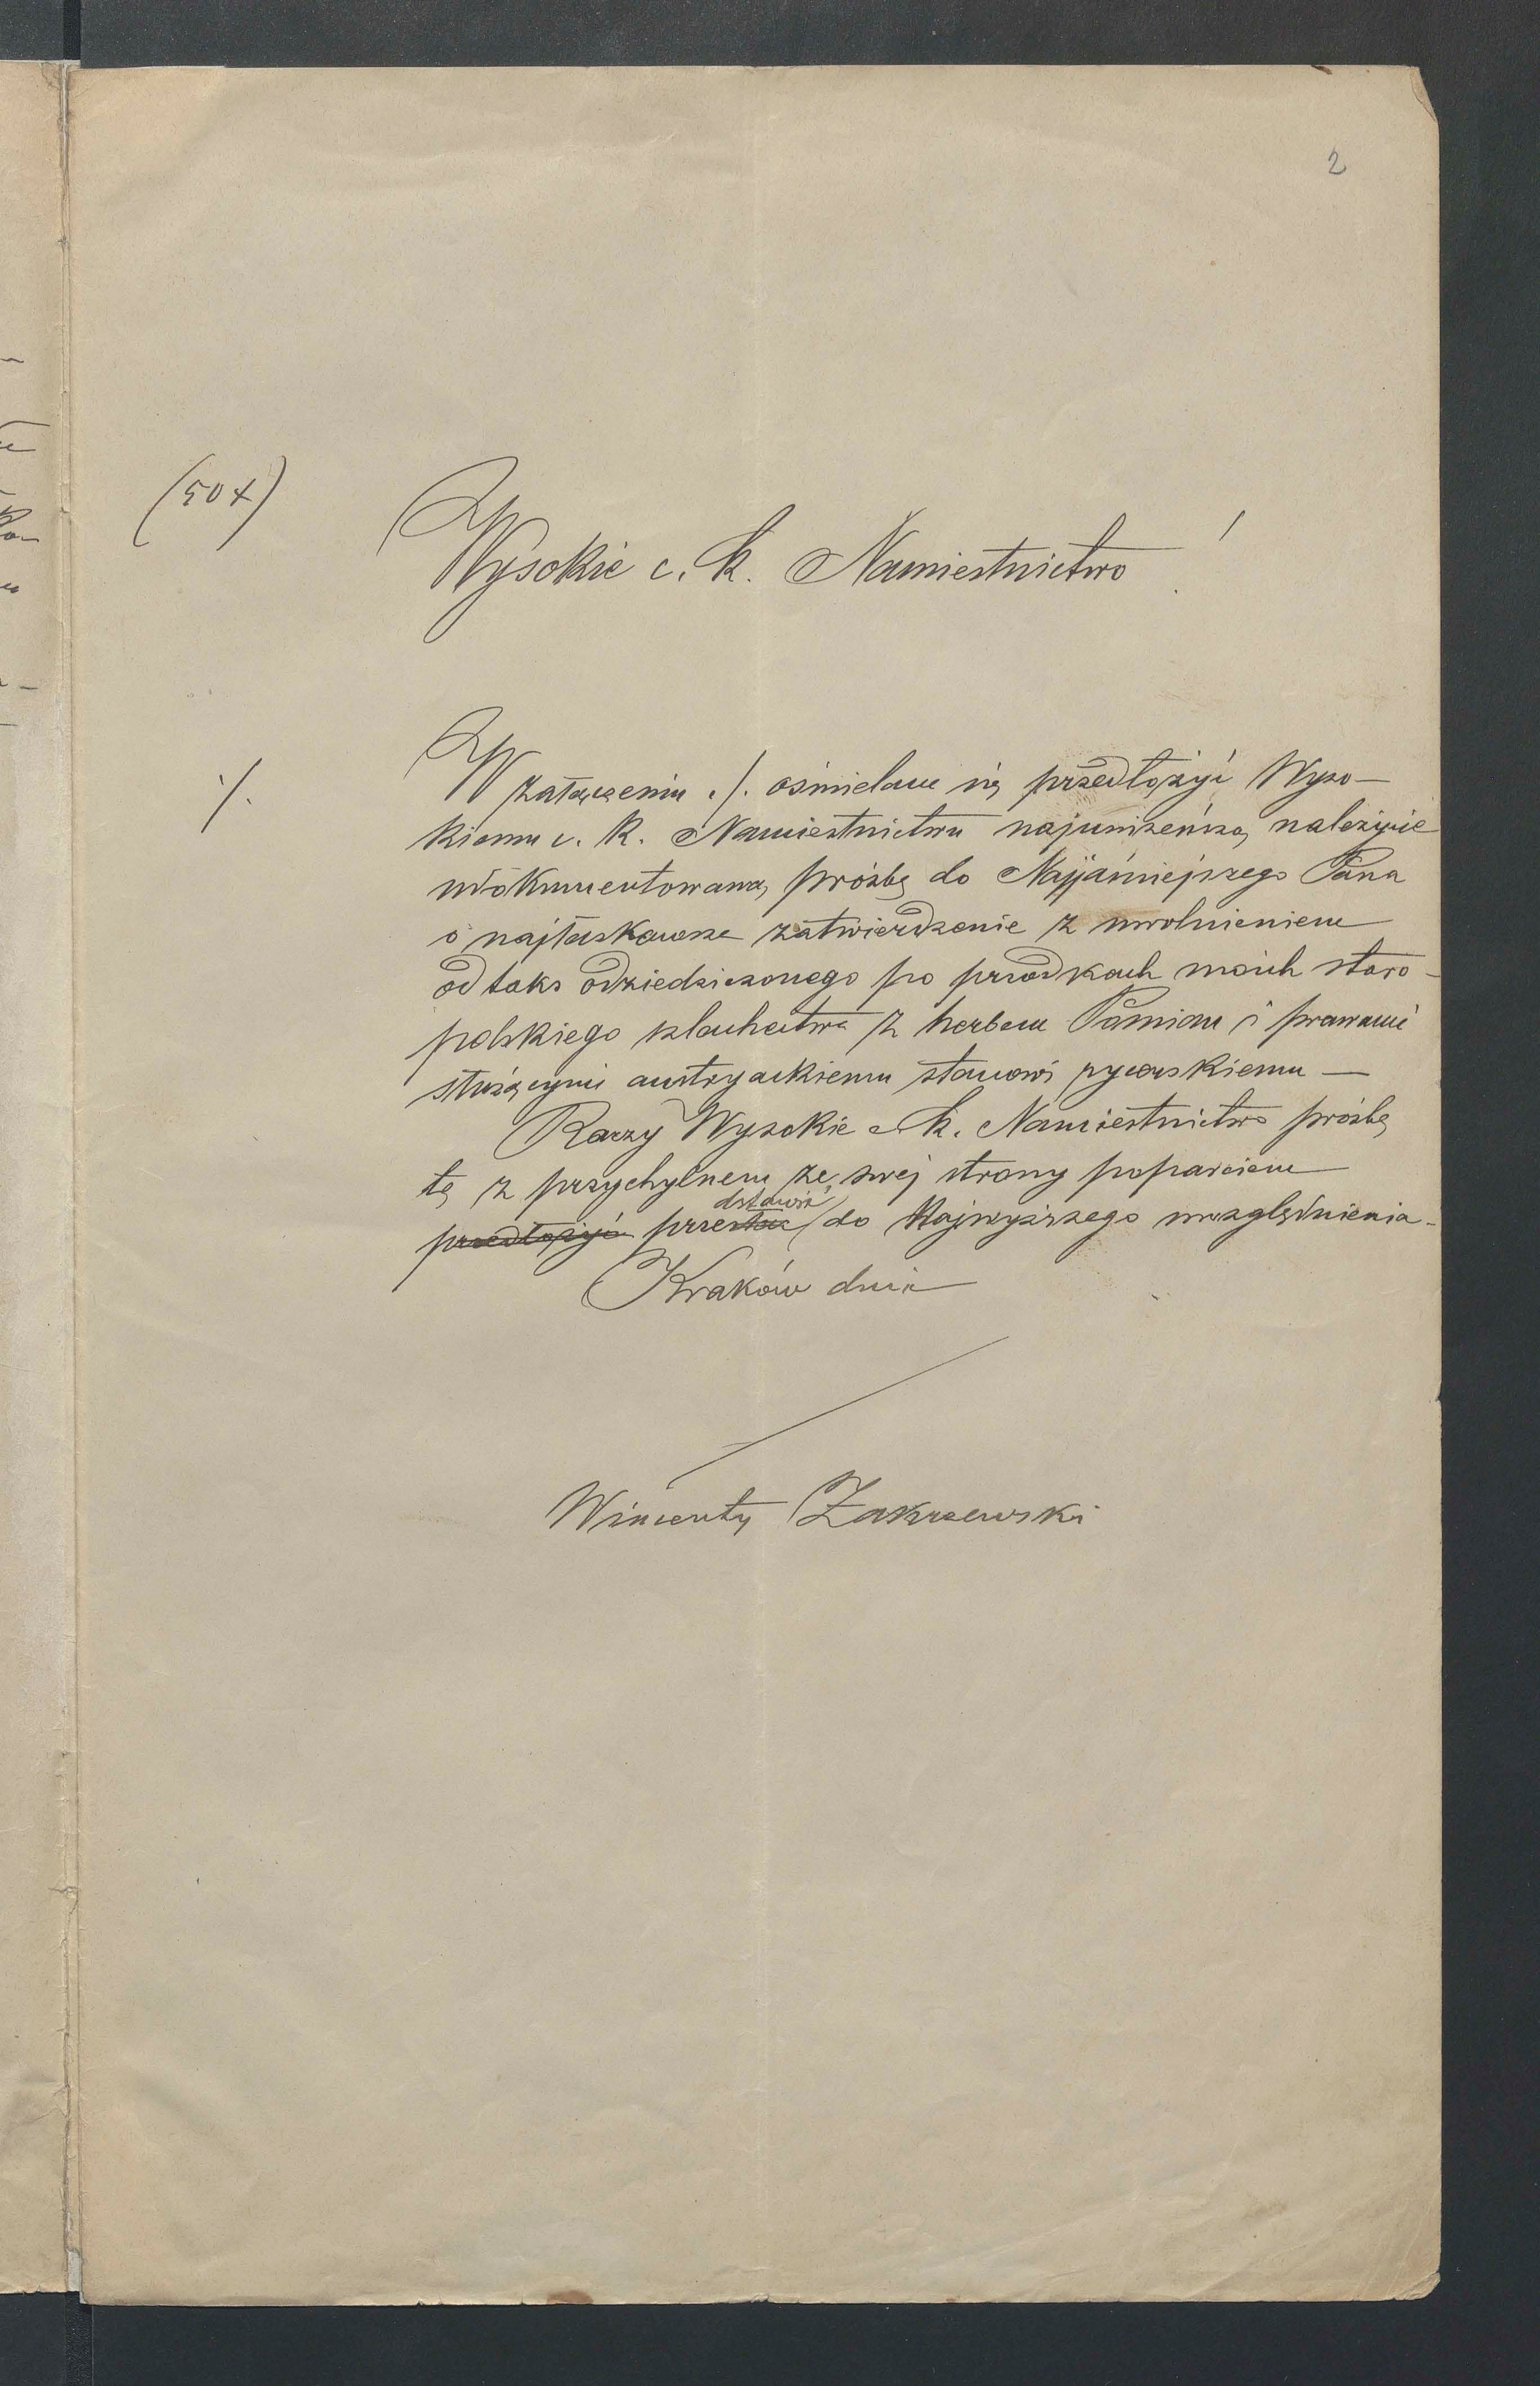 2
(50 x)
Wysokie c. k. Namiestnictwo!
./.
W załączeniu ./. ośmielam się przedłożyć Wyso-
kiemu c. k. Namiestnictwu najuniżeńszą, należycie
udokumentowaną prośbę do Najjaśniejszego Pana
o najłaskawsze zatwierdzenie z uwolnieniem
od taks odziedziczonego po przodkach moich staro-
polskiego szlachectwa z herbem Pomian i prawami
służącymi austryackiemu stanowi rycerskiemu —
Raczy Wysokie c. k. Namiestnictwo prośbę
tę z przychylnem ze swej strony poparciem
dstawić
przedłożyć przesłać do Najwyższego uwzględnienia.
Kraków dnia
Wincenty Zakrzewski